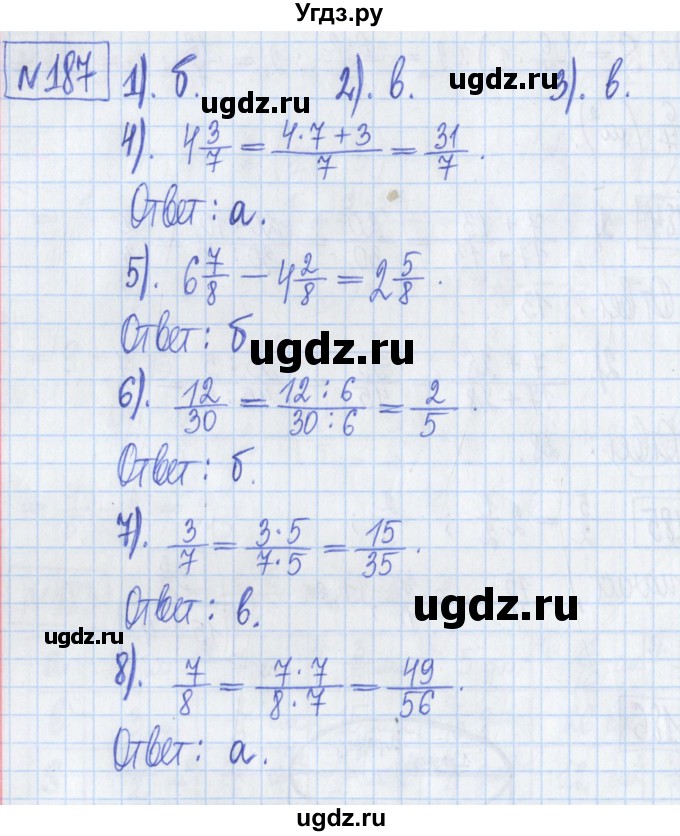 Угдз.ру
№187 1). б. 2). в. 3). в.
ugdz.ru ugdz.ru
4). 4 3/7 = (4·7+3)/7 = 31/7.
Ответ: а.
5). 6 7/8 − 4 2/8 = 2 5/8.
Ответ: б
ugdz.ru
6). 12/30 = (12:6)/(30:6) = 2/5.
Ответ: б.
7). 3/7 = (3·5)/(7·5) = 15/35.
Ответ: в.
ugdz.ru
ugdz.ru
8). 7/8 = (7·7)/(8·7) = 49/56.
Ответ: а.
ugdz.ru